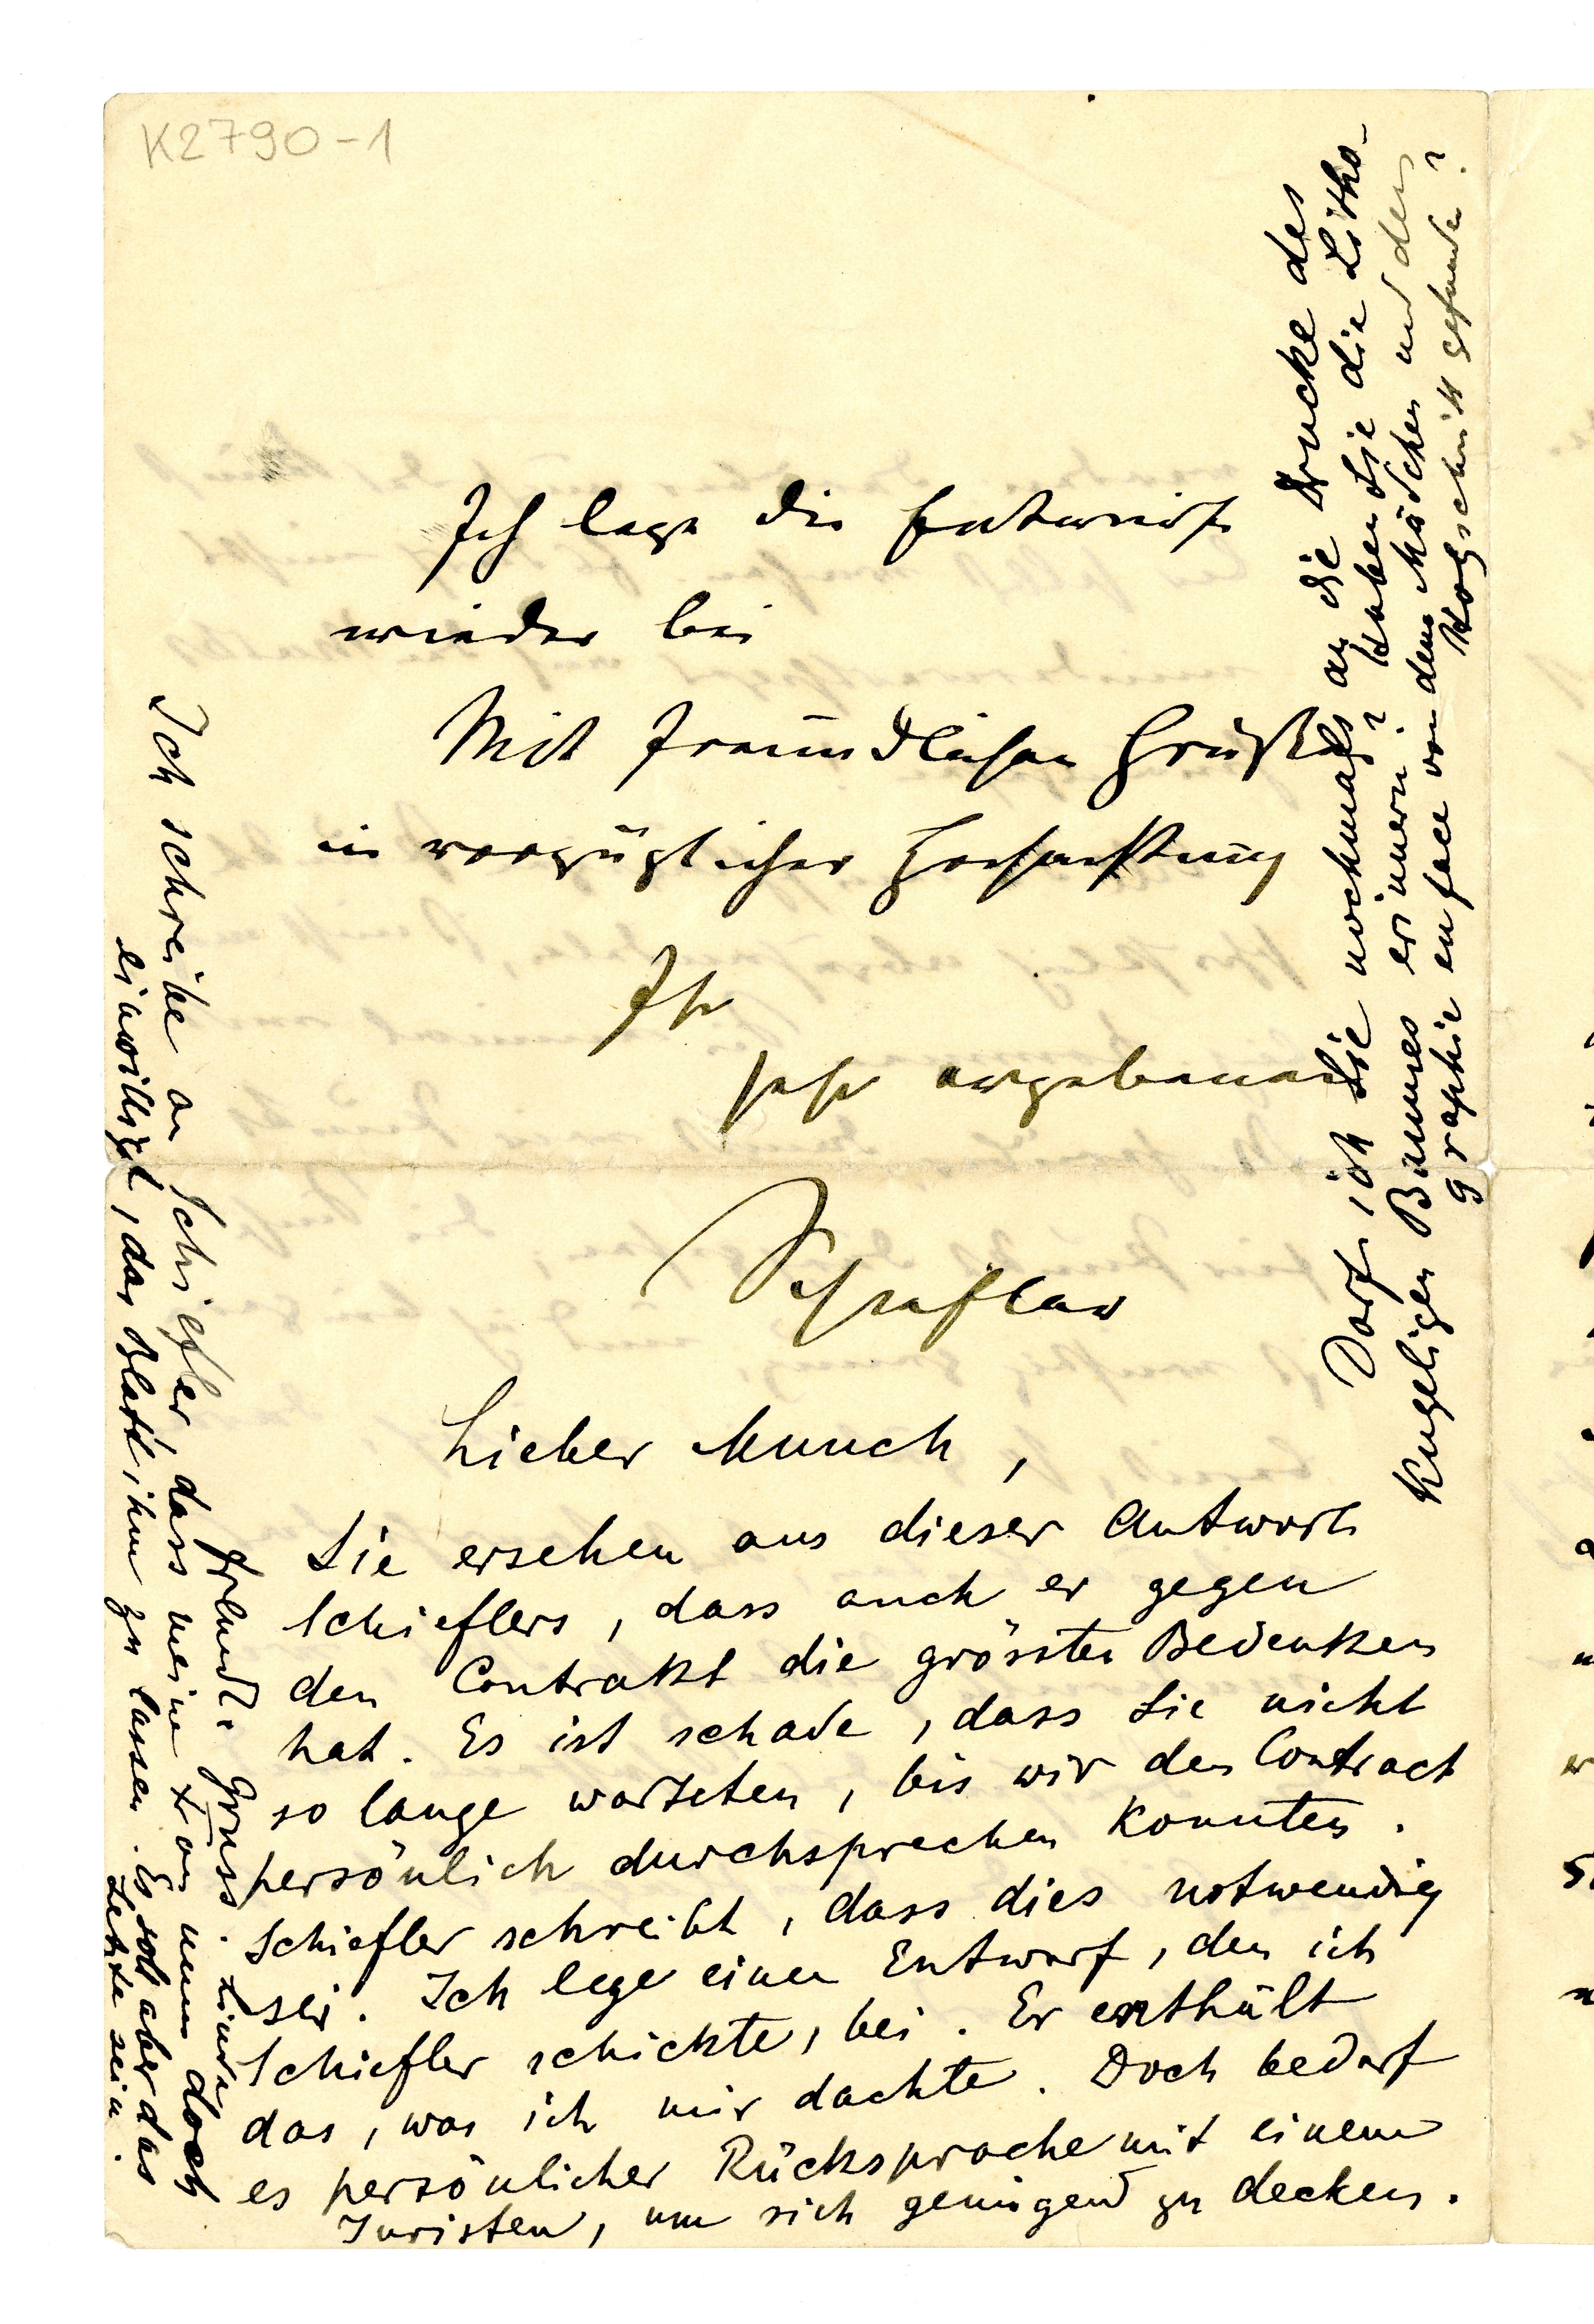 K2790-1
Ich lege die Entwürfe
wieder bei
Mit freundlichem Gruß &
in vorzüglicher Hochachtung
Ihr
sehr ergebener
Schiefler
Lieber Munch,
Sie ersehen aus dieser Antwort
Schieflers, dass auch er gegen
den Contrakt die grössten Bedenken
hat. Es ist schade, dass Sie nicht
so lange warteten, bis wir den Contract
persönlich durchsprechen konnten.
Schiefler schreibt, dass dies notwendig
sei. Ich lege einen Entwurf, den ich
Schiefler schickte, bei. Er enthält
das, was ich mir dachte. Doch bedarf
es persönlicher Rücksprache mit einem
Juristen, um sich genügend zu decken.
Darf ich Sie nochmals an die Drucke des
kugeligen Baumes erinnern? Haben Sie die Litho-
graphie en face von dem Mädchen und den
Holzschnitt gefunden?
Ich schreibe an Schiefler, dass meine Frau nun doch
einwilligt, das Blatt ihm zu lassen. Es soll aber das
Letzte sein.
Freundl. Gruss. Linde